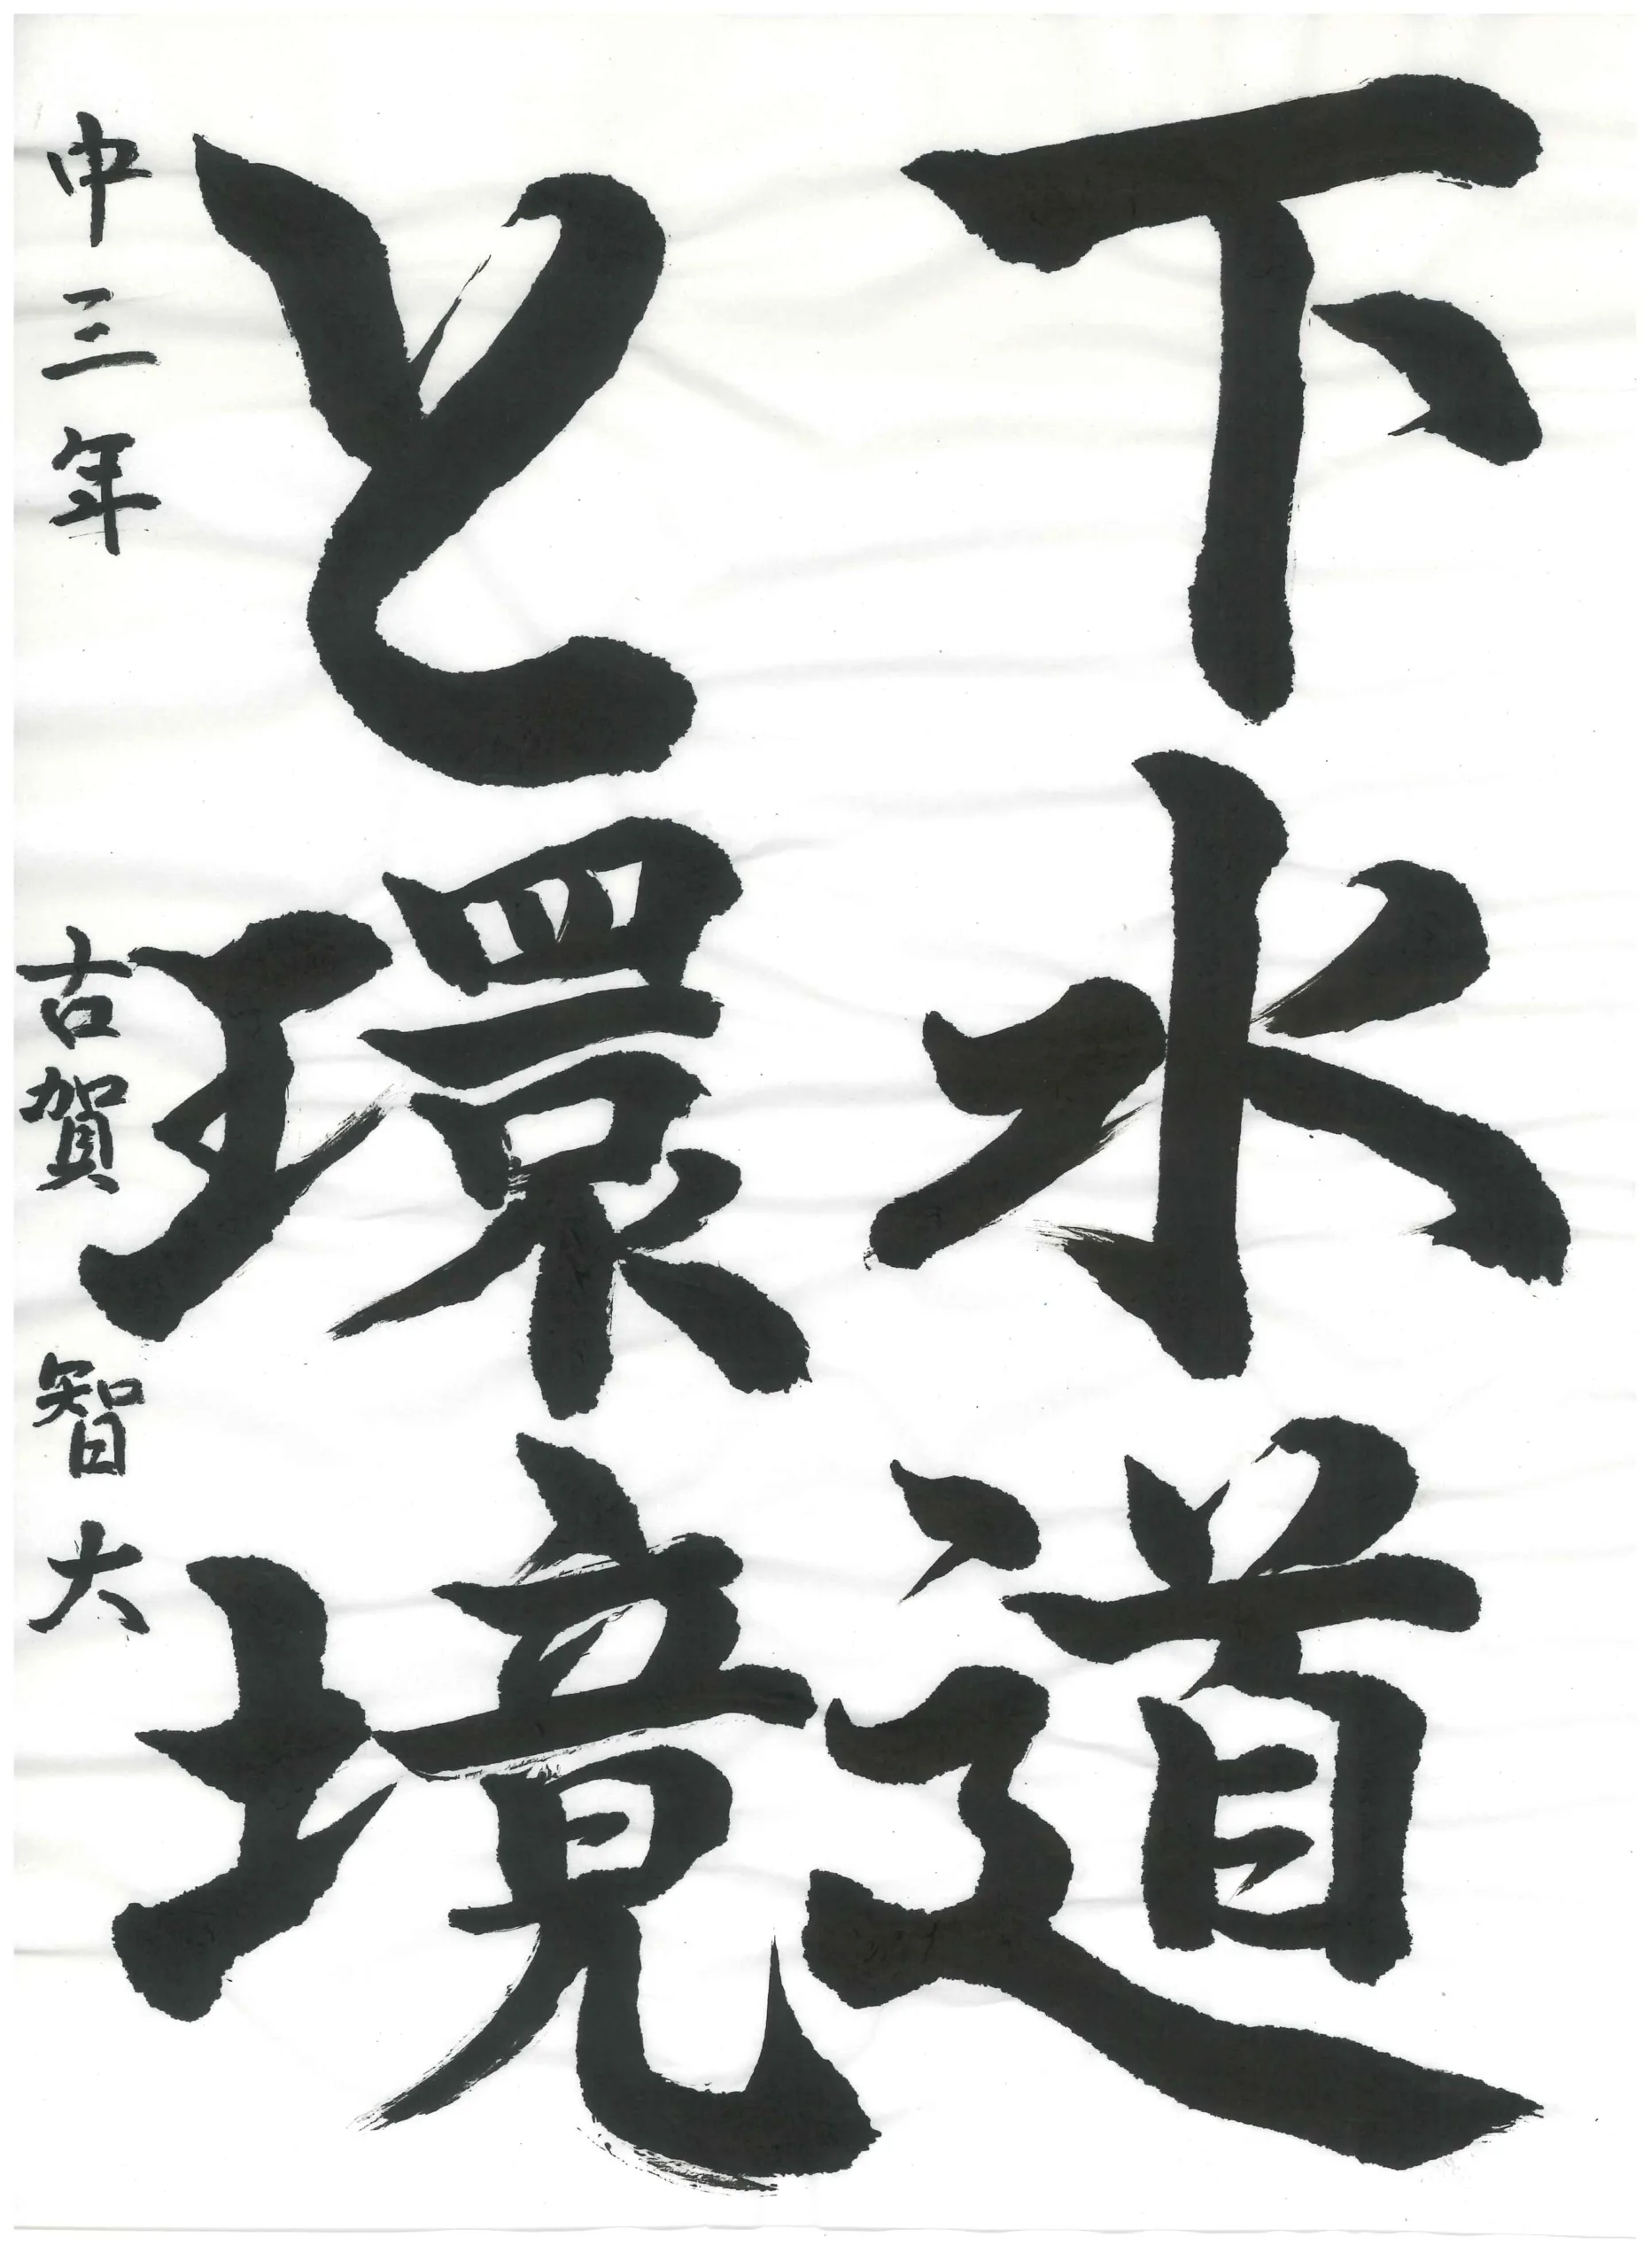 下水道
と環境
中三年 古賀智大